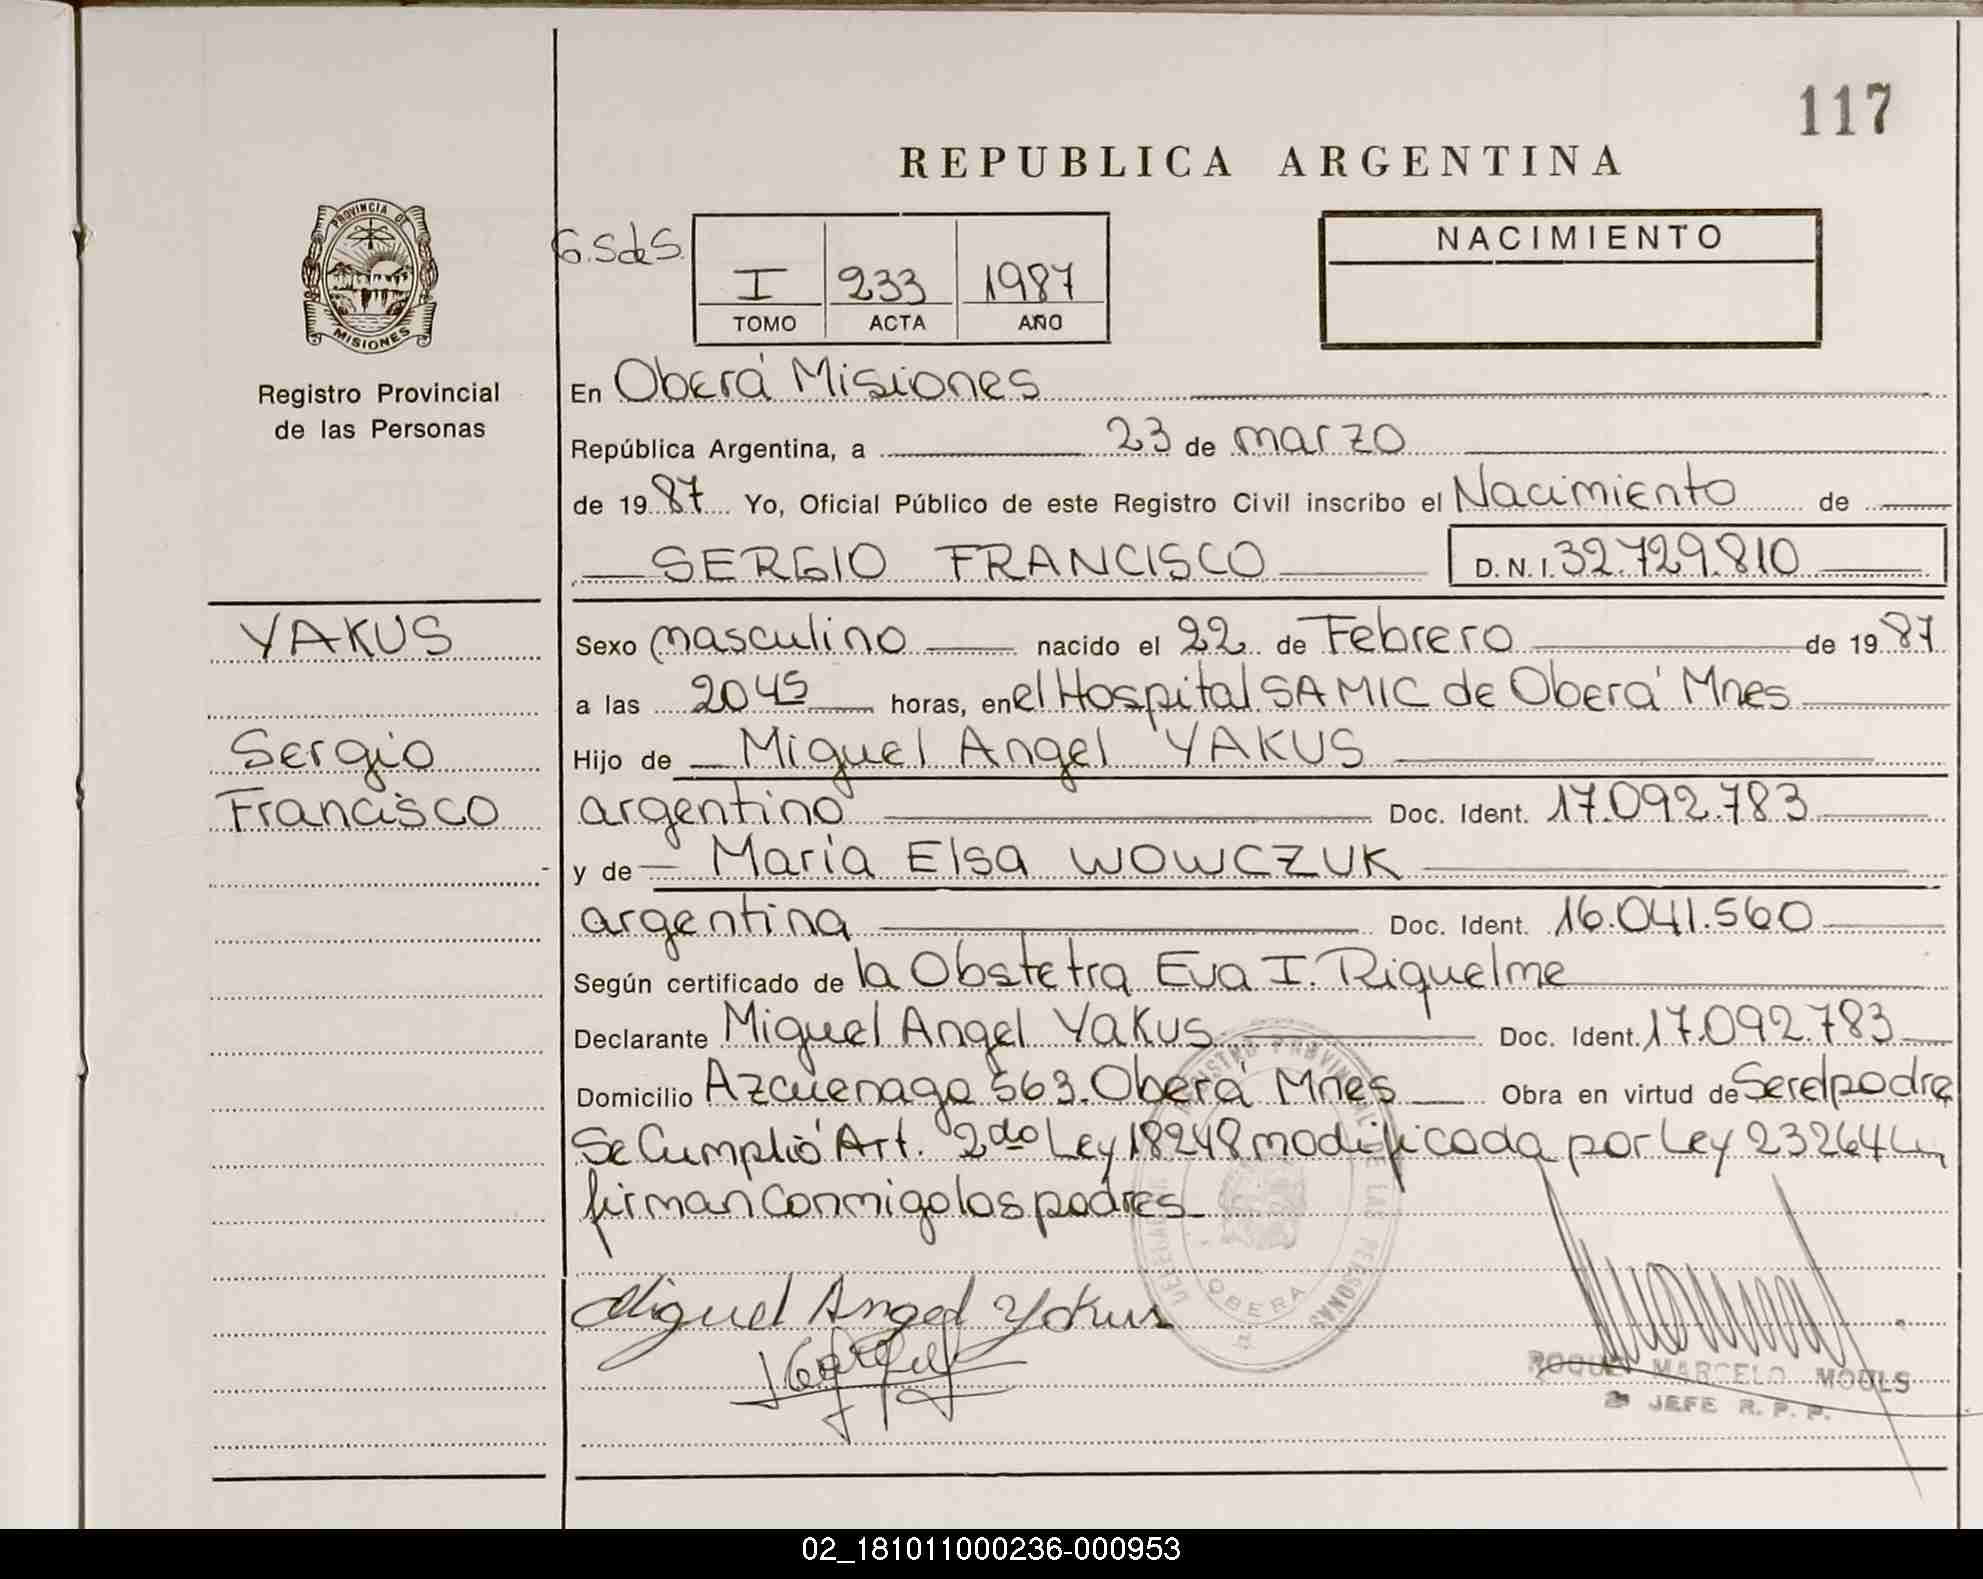 117
REPUBLICA ARGENTINA
PROVINCIA DE
MISIONES
Registro Provincial
de las Personas
G.SdeS.
I 233 1987
TOMO ACTA AÑO
NACIMIENTO
En Oberá Misiones
República Argentina, a 23 de marzo
de 1987 Yo, Oficial Público de este Registro Civil inscribo el Nacimiento de
SERGIO FRANCISCO D.N.I. 32.729.810
YAKUS
Sergio
Francisco
Sexo masculino nacido el 22 de Febrero de 1987
a las 2045 horas, en el Hospital SAMIC de Oberá Mnes
Hijo de Miguel Angel YAKUS
argentino Doc. Ident. 17.092.783
y de María Elsa WOWCZUK
argentina Doc. Ident. 16.041.560
Según certificado de la Obstetra Eva I. Riquelme
Declarante Miguel Angel Yakus Doc. Ident. 17.092.783
Domicilio Azcuenaga 563. Oberá Mnes Obra en virtud de Ser el padre
Se Cumplió Art. 2do Ley 18248 modificada por Ley 23264 y
firman conmigo los padres
REGISTRO PROVINCIAL DE LAS PERSONAS
OBERA
Miguel Angel Yakus
ROQUE MARCELO MOULS
JEFE R. P. P.
02_181011000236-000953